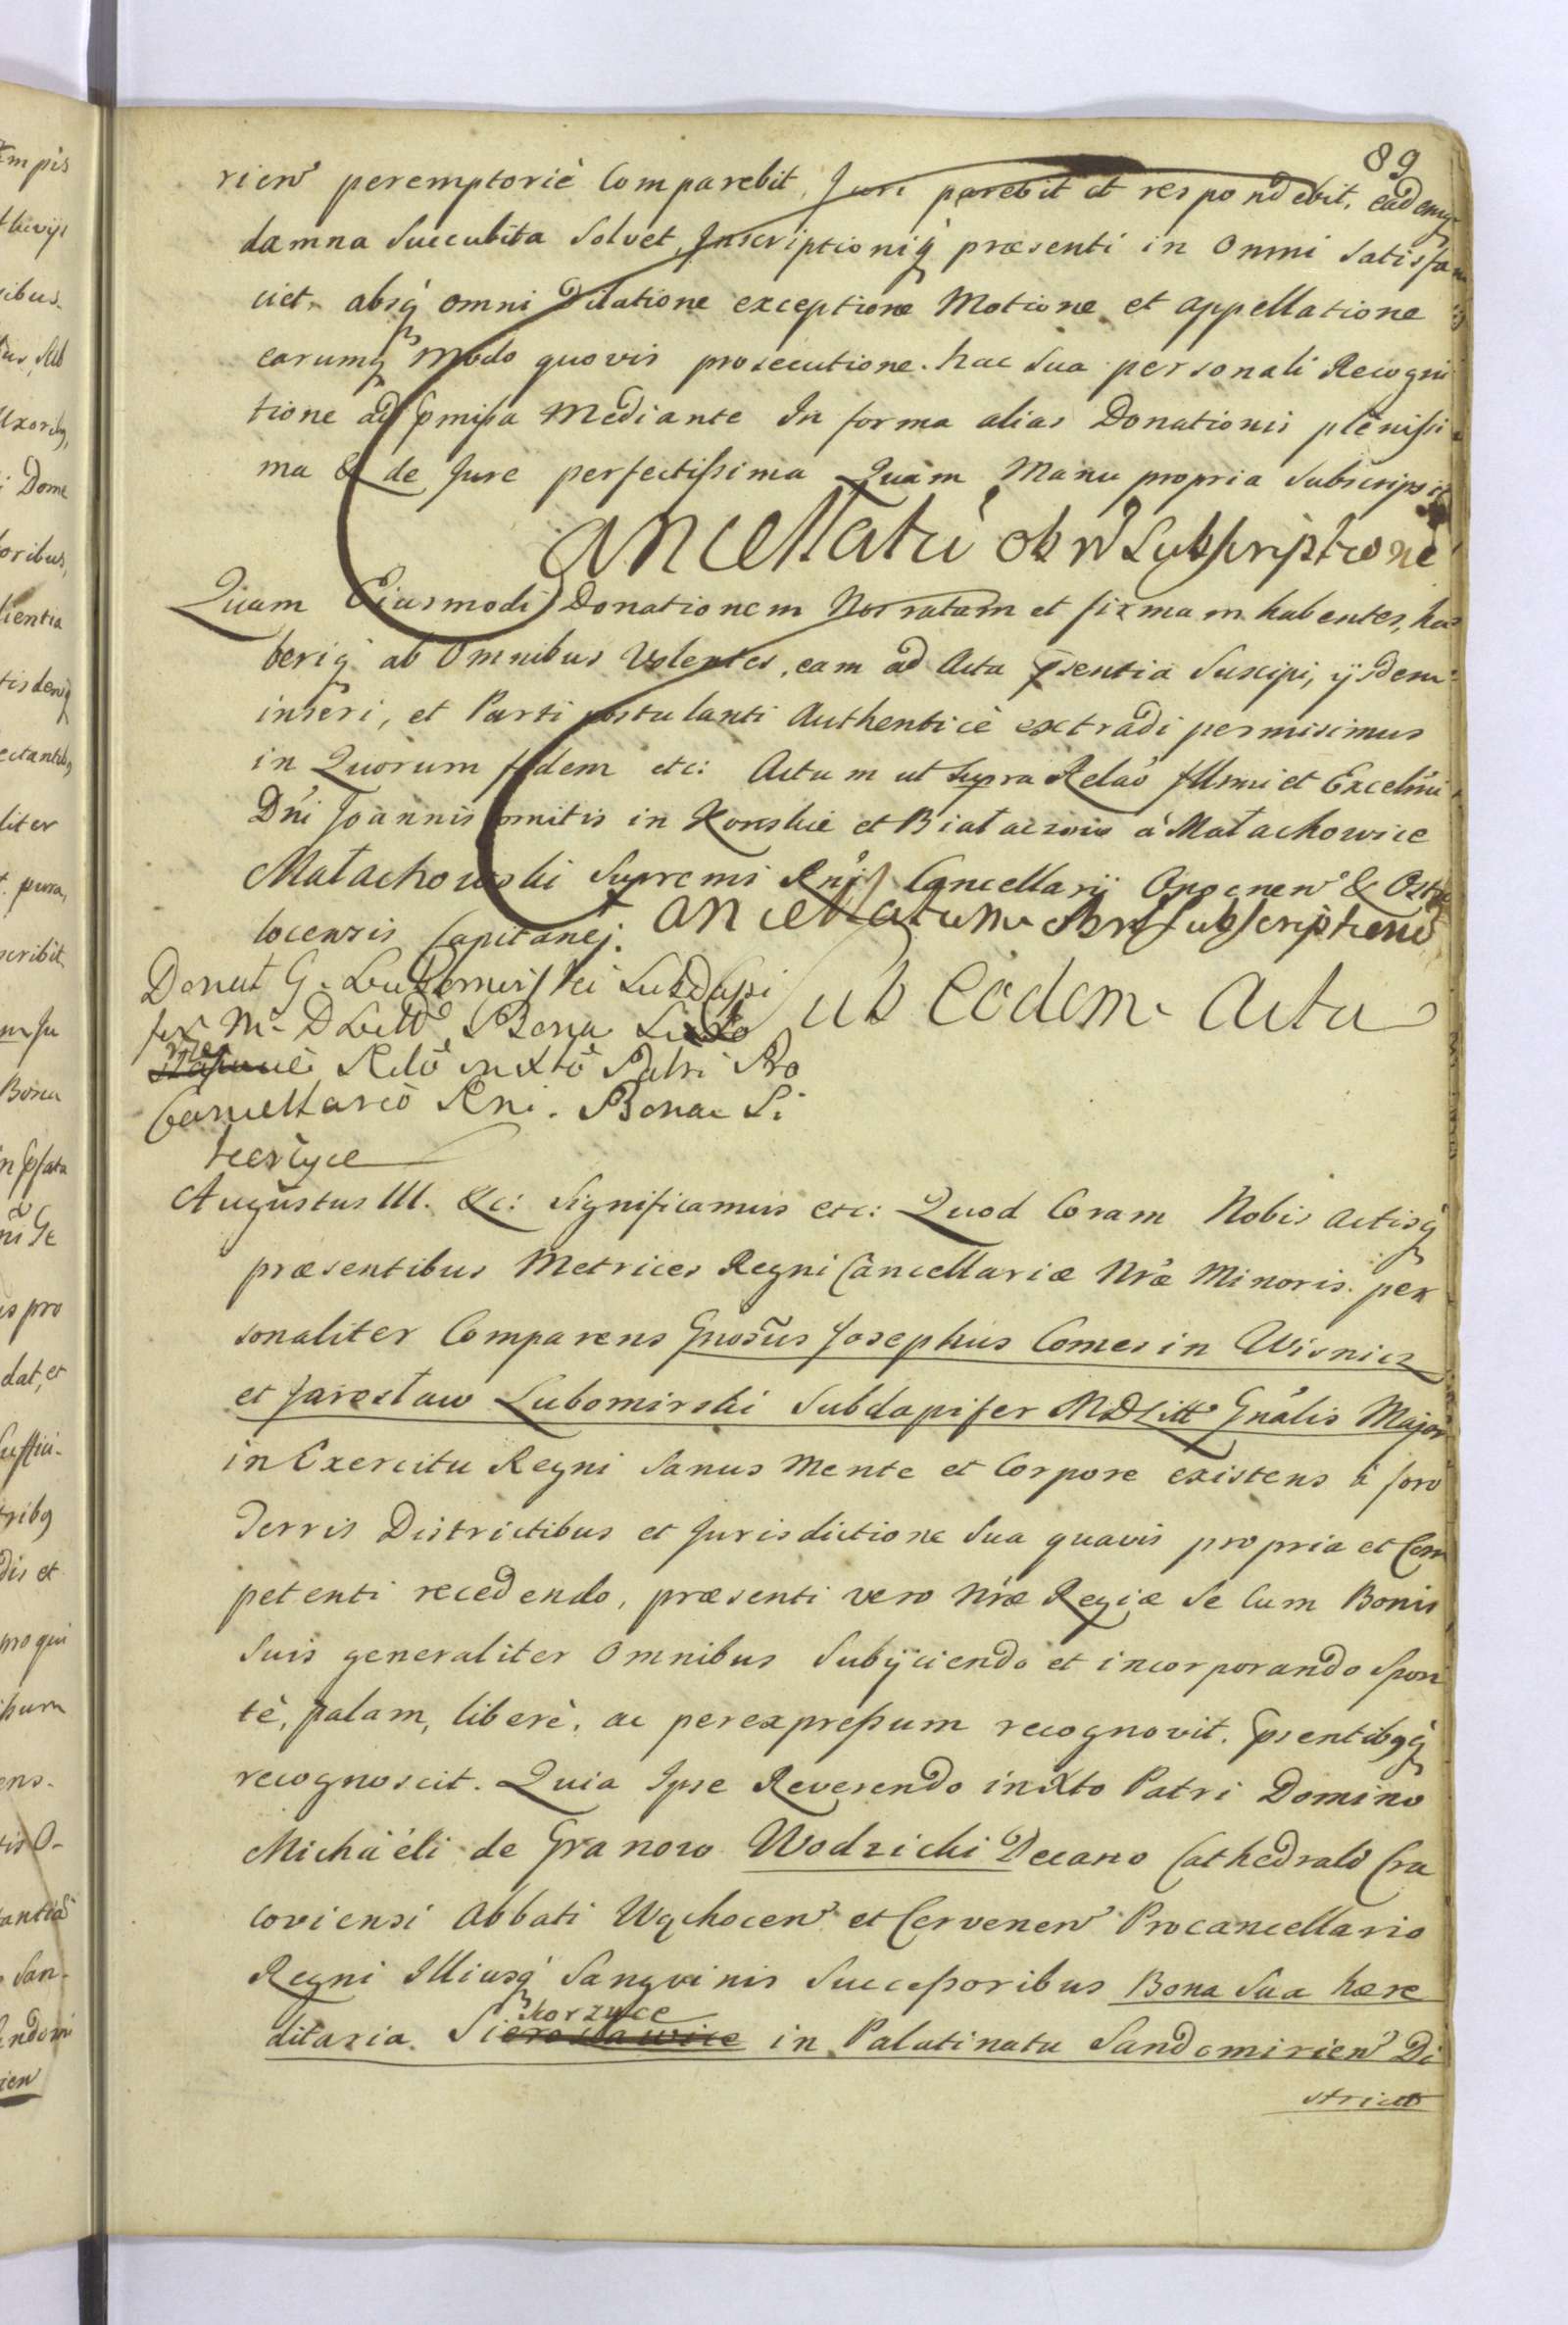 89
rien̄ peremptoriè Comparebit, Juri parebit et respondebit, eademq́
damna succubita solvet Inscriptioniq́ præsenti in Omni satisfa
ciet. absq́ omni Dilatione exceptione Motione et appellatione
earumq́ Modo quovis prosecutione. hac sua personali Recogni
tione ad p̄mißa Mediante In forma alias Donationis plenißi
ma & de Jure perfectißima Quam Manu propria subscripsit
Cancellatū ob n̄ subscriptione
Quam Eiusmodi Donationem Nos ratam et firmam habentes, ha
beriq́ ab Omnibus Volentes, eam ad Acta p̄sentia suscipi, ijsdem
inseri, et Parti postulanti Authenticè extradi permisimus
in Quorum fidem etc: Actum ut supra Relaō Illmi et Excellmi
Dńi Joannis Comitis in Konskie et Białaczow à Małachowice
Małachowski Supremi Rnī Cancellarij Opocnen̄ & Ostro
locensis Capitanej.
Cancellatum ob n̄ subscriptione
Donat G. Lubomirski Subdapi
fer M. D Litt̄, Bona
Sub Eodem Actu
Rdō in Xtō Patri Pro
Cancellario Rni. Bona Si

Augustus III. &c: Significamus etc: Quod Coram Nobis Actisq́
præsentibus Metrices Regni Cancellariæ Nr̄æ Minoris per
sonaliter Comparens Gnosūs Josephus Comes in Wisnicz
et Jarosław Lubomirski Subdapifer MDLitt Gnālis Major
in Exercitu Regni sanus Mente et Corpore existens à foro
Terris Districtibus et Jurisdictione sua quavis propria et Com
petenti recedendo, præsenti vero Nr̄æ Regiæ se Cum Bonis
suis generaliter Omnibus subijciendo et incorporando spon
tè, palam, liberè, ac perexpreßum recognovit, p̄sentibq́
recognoscit. Quia Ipse Reverendo in Xto Patri Domino
Michaéli de Granow Wodzicki Decano Cathedrali Cra
coviensi Abbati Wąchocen̄ et Cervenen̄ Procancellario
Regni Illiusq́ Sangvinis Succeßoribus Bona sua hære
korzyce
ditaria Sierosławice in Palatinatu Sandomirien̄ Di
strict